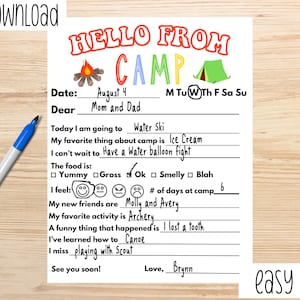 ownload
HELLO FROM
CAMP
Date: August 4 M Tu W Th F Sa Su
Dear Mom and Dad
Today I am going to Water Ski
My favorite thing about camp is Ice Cream
I can't wait to Have a Water balloon fight
The food is:
□ Yummy □ Gross ☑ Ok □ Smelly □ Blah
I feel: # of days at camp 6
My new friends are Molly and Avery
My favorite activity is Archery
A funny thing that happened is I lost a tooth
I've learned how to Canoe
I miss playing with Scout
See you soon! Love, Brynn
easy